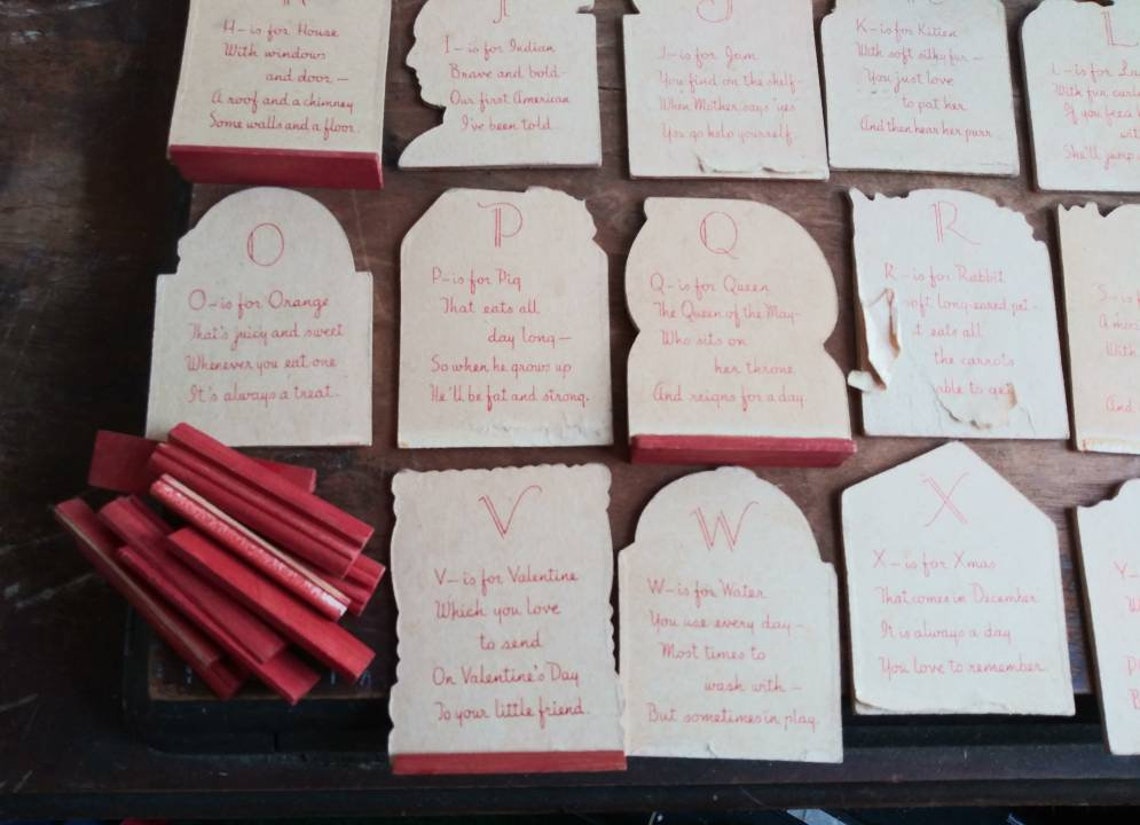 H
H- is for House
With windows
and door-
A roof and a chimney
Some walls and a floor.
I
I- is for Indian
Brave and bold-
Our first American
I've been told.
J
J- is for Jam
You find on the shelf-
When Mother says "yes
You go help yourself.
K
K- is for Kitten
With soft silky fur-
You just love
to pat her
And then hear her purr.
L
L- is for
With fun
If you feed
She'll jump
O
O- is for Orange
That's juicy and sweet
Whenever you eat one
It's always a treat.
P
P- is for Pig
That eats all
day long-
So when he grows up
He'll be fat and strong.
Q
Q- is for Queen
The Queen of the May-
Who sits on
her throne
And reigns for a day.
R
R- is for Rabbit
soft long-eared pet-
t eats all
the carrots
able to get
S- is
With
And
V
V- is for Valentine
Which you love
to send
On Valentine's Day
To your little friend.
W
W- is for Water
You use every day-
Most times to
wash with-
But sometimes in play.
X
X- is for Xmas
That comes in December
It is always a day
You love to remember.
Y-